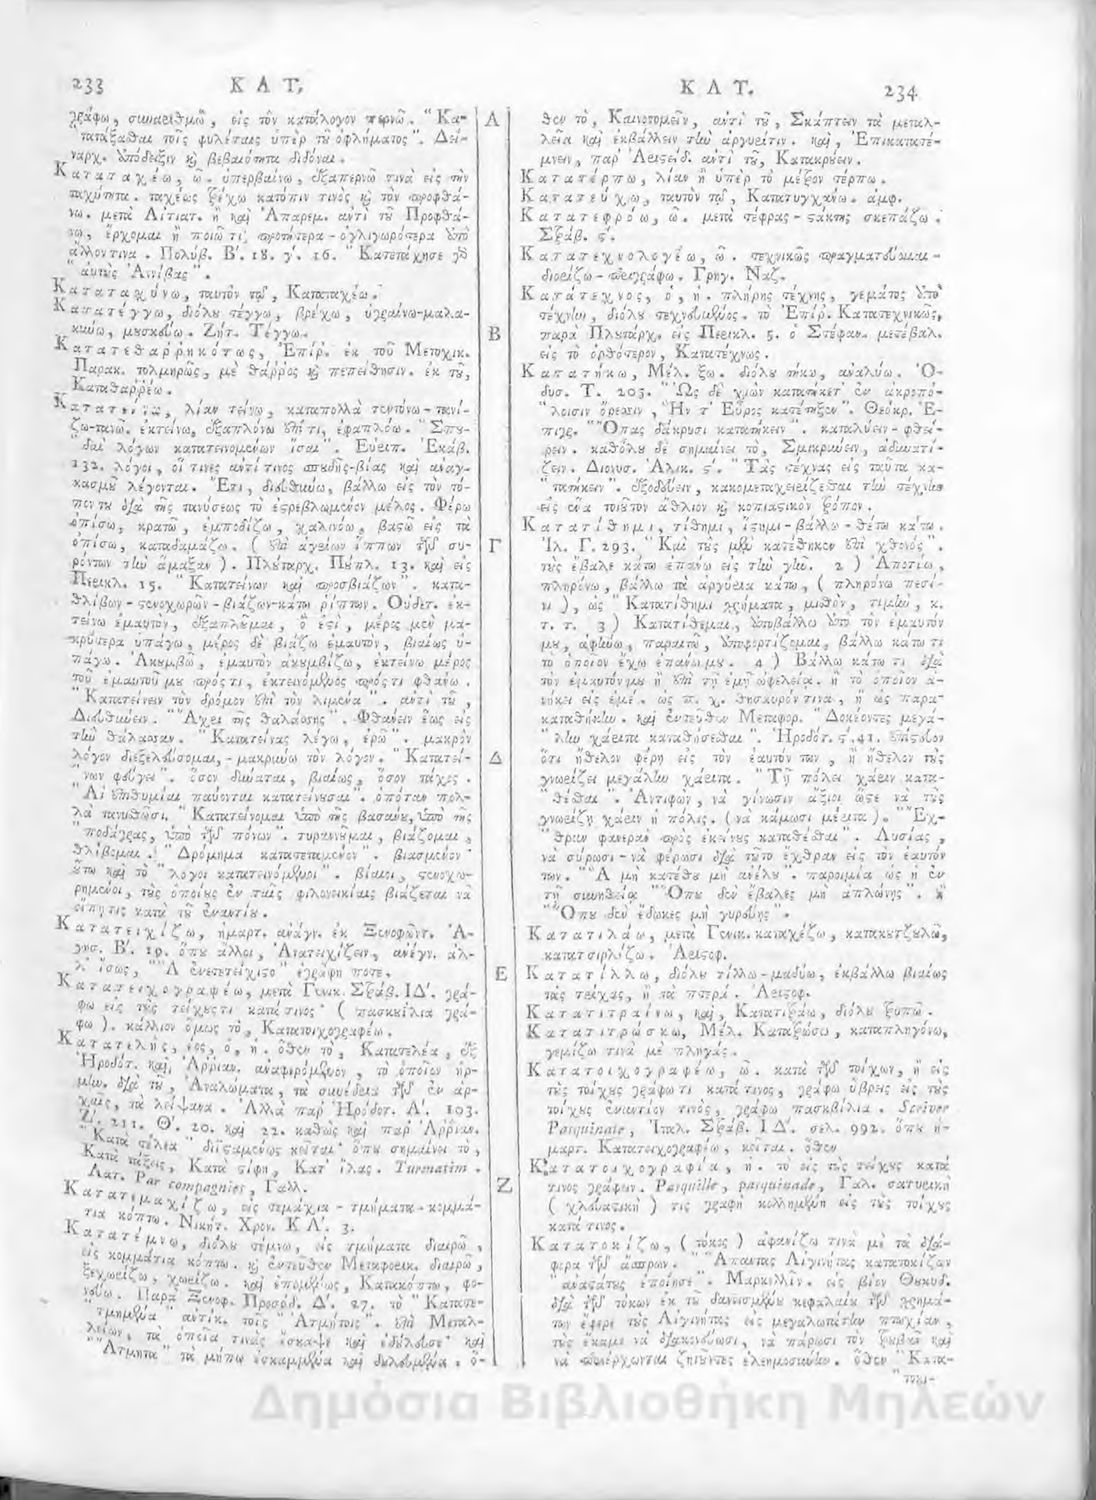 233 ΚΑΤ.
γράφω, συναριθμῶ, εἰς τὸν κατάλογον περνῶ. "Κα-
"τατάξασθαι τοῖς φυλέταις ὑπὲρ τῦ ὀφλήματος". Δεί-
ναρχ. ὑπόδειξιν ϗ βεβαιότητα διδόναι.
Καταταχέω, ῶ. ὑπερβαίνω, ἐξαπερνῶ τινὰ εἰς τὴν
ταχύτητα. ταχέως τρέχω κατόπιν τινὸς ϗ τὸν προφθά-
νω. μετὰ Αἰτιατ. ἢ καὶ Ἀπαρεμ. ἀντὶ τῦ Προφθά-
νω, ἔρχομαι ἢ ποιῶ τι, προτήτερα-ὀγλιγωρότερα ὑπὸ
ἄλλον τινα. Πολύβ. Β'. 18. γ'. 16. "Κατετάχησε γὸ
"αὐτὺς Ἀννίβας".
Καταταχύνω, ταυτὸν τῷ, Καταταχέω.
Κατατέγγω, διόλυ τέγγω, βρέχω, ὑγραίνω-μαλα-
κύνω, μυσκεύω. Ζήτ. Τέγγω.
Κατατεθαῤῥηκότως, Ἐπίρ. ἐκ τοῦ Μετοχικ.
Παρακ. τολμηρῶς, μὲ θάῤῥος ϗ πεποίθησιν. ἐκ τῦ,
Καταθαῤῥέω.
Κατατείνω, λίαν τείνω, καταπολλὰ τεντόνω-τανί-
ζω-τανύω. ἐκτείνω, ἐξαπλόνω ἐπί τι, ἐφαπλόω. "Σπυ-
"δαὶ λόγων κατατεινομένων ἴσαι". Εὐριπ. Ἑκάβ.
132. λόγοι, οἵ τινες ἀντί τινος σπυδῆς-βίας καὶ ἀναγ-
κασμῦ λέγονται. Ἔτι, διευθύνω, βάλλω εἰς τὸν τό-
πον τυ διὰ τῆς τανύσεως τὸ ἐστρεβλωμένον μέλος. Φέρω
ὀπίσω, κρατῶ, ἐμποδίζω, χαλινόω, βαστῶ εἰς τὰ
ὀπίσω, καταδαμάζω. (ἐπὶ ἀγρίων ἵππων τῶν συ-
ρόντων τὴν ἅμαξαν). Πλυταρχ. Πυπλ. 13. καὶ εἰς
Περικλ. 15. "Κατατείνων καὶ προσβιάζων". κατα-
θλίβων-στενοχωρῶν-βιάζων-κάτω ῥίπτων. Οὐδετ. ἐκ-
τείνω ἐμαυτὸν, ἐξαπλόμαι, ὅ ἐστι, μέρος μὲν μα-
κρύτερα ὑπάγω, μέρος δὲ βιάζω ἐμαυτὸν, βιαίως ὑ-
πάγω. Ἀκυμβῶ, ἐμαυτὸν ἀκυμβίζω, ἐκτείνω μέρος
τοῦ ἐμαυτοῦ μυ πρός τι, ἐκτεινόμενος πρός τι φθάνω.
"Κατατείνειν τὸν δρόμον ἐπὶ τὸν λιμένα". ἀντὶ τῦ,
Διευθύνειν. ""Αχρι τῆς θαλάσσης". Φθάνειν ἕως εἰς
τὴν θάλασσαν. "Κατατείνας λέγω, ἐρῶ". μακρὸν
λόγον διεξελεύσομαι,-μακρύνω τὸν λόγον. "Κατατεί-
"νων φεύγει". ὅσον δύναται, βιαίως, ὅσον τάχος.
"Αἱ ἐπιθυμίαι παύονται κατατείνυσαι". ὁπόταν πολ-
λὰ τανυθῶσι. "Κατατείνομαι ὑπὸ τῆς βασάνυ, ὑπὸ τῆς
"ποδάγρας, ὑπὸ τῶν πόνων". τυραννῦμαι, βιάζομαι,
θλίβομαι. "Δρόμημα κατατεταμένον". βιασμένον
ὕτω καὶ τὸ "λόγοι κατατεινόμενοι". βίαιοι, στενοχω-
ρημένοι, τὺς ὁποίυς ἐν ταῖς φιλονεικίαις βιάζεται νὰ
εἴπῃ τις κατὰ τῦ ἐναντίυ.
Κατατειχίζω, ἡμαρτ. ἀνάγν. ἐκ Ξενοφῶντ. Ἀ-
γησ. Β'. 19. ὅπυ ἄλλοι, Ἀνατειχίζειν, ἀνέγν. ἀλ-
λ' ἴσως, ""Α ἐνετετείχιστο" ἐγράφη ποτε.
Κατατειχογραφέω, μετὰ Γενικ. Στράβ. ΙΔ'. γρά-
φω εἰς τὺς τείχυς τι κατά τινος (πασκυίλια γρά-
φω). κάλλιον ὅμως τὸ, Κατατοιχογραφέω.
Κατατελής, έος, ὁ, ἡ. ὅθεν τὸ, Κατατελέα, ἐξ
Ἡροδότ. καὶ Ἀῤῥιαν. ἀναφερόμενον, τὸ ὁποῖον ἡρ-
μην. διὰ τῦ, Ἀναλώματα, τὰ συνέδρια τῶν ἐν ἀρ-
χαῖς, τὰ λείψανα. Ἀλλὰ παρ' Ἡρόδοτ. Α'. 103.
Ζ'. 211. Θ'. 20. καὶ 22. καθὼς καὶ παρ' Ἀῤῥιαν.
"Κατὰ τέλεα" διϊσαμένως κεῖται ὅπυ σημαίνει τὸ,
Κατὰ τάξεις, Κατὰ στίφη, Κατ' ἴλας. Turmatim.
Λατ. Par compagnies, Γαλλ.
Κατατεμαχίζω, εἰς τεμάχια-τμήματα-κομμά-
τια κόπτω. Νικήτ. Χρον. ΚΛ'. 3.
Κατατέμνω, διόλυ τέμνω, εἰς τμήματα διαιρῶ,
εἰς κομμάτια κόπτω. ϗ ἐντεῦθεν Μεταφορικ. διαιρῶ,
ξεχωρίζω, χωρίζω. καὶ ἑπομένως, Κατακόπτω, φο-
νεύω. Παρὰ Ξενοφ. Προσόδ. Δ'. 27. τὸ "Κατατε-
"τμημένα" ἀντίκ. τοῖς "Ἀτμήτοις". ἐπὶ Μεταλ-
λείων, τὰ ὁποῖα τινὰς ἔσκαψε καὶ ἐδύλευσε καὶ
""Ατμητα" τὰ μήπω ἐσκαμμένα καὶ δυλευμένα. ὅ-
Α
Β
Γ
Δ
Ε
Ζ
ΚΑΤ. 234
θεν τὸ, Καινοτομεῖν, ἀντὶ τῦ, Σκάπτειν τὰ μεταλ-
λεῖα καὶ ἐκβάλλειν τὴν ἀργυρῖτιν. καὶ, Ἐπικατατέ-
μνειν, παρ' Ἀριστείδ. ἀντὶ τῦ, Κατακρύειν.
Κατατέρπω, λίαν ἢ ὑπὲρ τὸ μέτρον τέρπω.
Κατατεύχω, ταυτὸν τῷ, Κατατυγχάνω. ἀμφ.
Κατατεφρόω, ῶ. μετὰ τέφρας-στάκτης σκεπάζω.
Στράβ. ϛ'.
Κατατεχνολογέω, ῶ. τεχνικῶς πραγματεύομαι-
διορίζω-περιγράφω. Γρηγ. Ναζ.
Κατάτεχνος, ὁ, ἡ. πλήρης τέχνης, γεμάτος ὑπὸ
τέχνην, διόλυ τεχνευμένος. τὸ Ἐπίρ. Κατατεχνικῶς,
παρὰ Πλυτάρχ. εἰς Περικλ. 5. ὁ Στέφαν. μετέβαλ.
εἰς τὸ ὀρθότερον, Κατατέχνως.
Κατατήκω, Μέλ. ξω. διόλυ τήκω, ἀναλύω. Ὀ-
δυσ. Τ. 205. "Ὡς δὲ χιὼν κατατήκετ' ἐν ἀκροπό-
"λοισιν ὄρεσσιν, "Ην τ' Εὖρος κατέτηξεν". Θεόκρ. Ἐ-
πιγρ. ""Οπας δάκρυσι κατατήκειν". καταλύειν-φθεί-
ρειν. καθόλυ δὲ σημαίνει τὸ, Σμικρύνειν, ἀδυνατί-
ζειν. Διονυσ. Ἁλικ. ϛ'. "Τὰς τέχνας εἰς ταῦτα κα-
"τατήκειν". ἐξοδεύειν, κακομεταχειρίζεσθαι τὴν τέχνην
εἰς ἕνα τοιῦτον ἄθλιον ϗ κοπιαστικὸν τρόπον.
Κατατίθημι, τίθημι, ἵστημι-βάλλω-θέτω κάτω.
Ἰλ. Γ. 293. "Καὶ τὺς μὲν κατέθηκεν ἐπὶ χθονός".
τὺς ἔβαλε κάτω ἐπάνω εἰς τὴν γῆν. 2) Ἀποτίω,
πληρόνω, βάλλω τὰ ἀργύρια κάτω, (πληρόνω πεσί-
ν), ὡς "Κατατίθημι χρήματα, μισθὸν, τιμὴν, κ.
τ. τ. 3) Κατατίθεμαι, ὑποβάλλω ὑπὸ τὸν ἐμαυτόν
μυ, ἀφίνω, παραιτῶ, ὑποφορτίζομαι, βάλλω κάτω τι
τὸ ὁποῖον ἔχω ἐπάνω μυ. 4) Βάλλω κάτω τι διὰ
τὸν ἐμαυτόν μυ ἢ ἐπὶ τῇ ἐμῇ ὠφελείᾳ. ἢ τὸ ὁποῖον ἀ-
νήκει εἰς ἐμέ. ὡς π. χ. θησαυρόν τινα, ἢ ὡς παρα-
καταθήκην. καὶ ἐντεῦθεν Μεταφορ. "Δοκέοντες μεγά-
"λην χάριτα καταθήσεσθαι". Ἡροδότ. ϛ'. 41. ἐπίστευον
ὅτι ἤθελον φέρῃ εἰς τὸν ἑαυτόν των, ἢ ἤθελον τὺς
γνωρίζει μεγάλην χάριτα. "Τῇ πόλει χάριν κατα-
"θέσθαι". Ἀντιφῶν, νὰ γίνωσιν ἄξιοι ὥστε νὰ τὺς
γνωρίζῃ χάριν ἡ πόλις. (νὰ κάμωσι μέριτα). ""Εχ-
"θραν φανερὰν πρὸς ἐκείνυς καταθέσθαι". Λυσίας,
νὰ σύρωσι-νὰ φέρωσι διὰ τῦτο ἔχθραν εἰς τὸν ἑαυτόν
των. ""Α μὴ κατέθυ μὴ ἀνέλυ". παροιμία ὡς ἡ ἐν
τῇ συνηθείᾳ ""Οπυ δὲν ἔβαλες μὴ ἁπλώνῃς". ἢ
""Οπυ δὲν ἔδωκες μὴ γυρεύῃς".
Κατατιλάω, μετὰ Γενικ. καταχέζω, κατακυτζυλῶ,
κατατσιρλίζω. Ἀριστοφ.
Κατατίλλω, διόλυ τίλλω-μαδύω, ἐκβάλλω βιαίως
τὰς τρίχας, ἢ τὰ πτερά. Ἀριστοφ.
Κατατιτραίνω, καὶ, Κατατιτράω, διόλυ τρυπῶ.
Κατατιτρώσκω, Μέλ. Κατατρώσω, καταπληγόνω,
γεμίζω τινὰ μὲ πληγάς.
Κατατοιχογραφέω, ῶ. κατὰ τῶν τοίχων, ἢ εἰς
τὺς τοίχυς γράφω τι κατά τινος, γράφω ὕβρεις εἰς τὺς
τοίχυς ἐναντίον τινὸς, γράφω πασκβίλια. Scriver
Pasquinate, Ἰταλ. Στράβ. ΙΔ'. σελ. 992. ὅπυ ἡ-
μαρτ. Κατατειχογραφέω, κεῖται. ὅθεν
Κατατοιχογραφία, ἡ. τὸ εἰς τὺς τοίχυς κατά
τινος γράφειν. Pasquille, pasquinade, Γαλ. σατυρικὴ
(χλευαστικὴ) τις γραφὴ κολλημένη εἰς τὺς τοίχυς
κατά τινος.
Κατατοκίζω, (τόκος) ἀφανίζω τινὰ μὲ τὰ διά-
φορα τῶν ἄσπρων. ""Απαντας Αἰγινήτας κατατοκίζων
"ἀναστάτυς ἐποίησε". Μαρκιλλῖν. εἰς βίον Θυκυδ.
διὰ τῶν τόκων ἐκ τῦ δανεισμένυ κεφαλαίυ τῶν χρημά-
των ἔφερε τὺς Αἰγινήτας εἰς μεγαλωτάτην πτωχίαν,
τὺς ἔκαμε νὰ διακονεύωσι, νὰ πάρωσι τὸν τρυβᾶν καὶ
νὰ περιέρχωνται ζητῦντες ἐλεημοσύνην. ὅθεν "Κατα-
"τοκι-
Δημόσια Βιβλιοθήκη Μηλεών